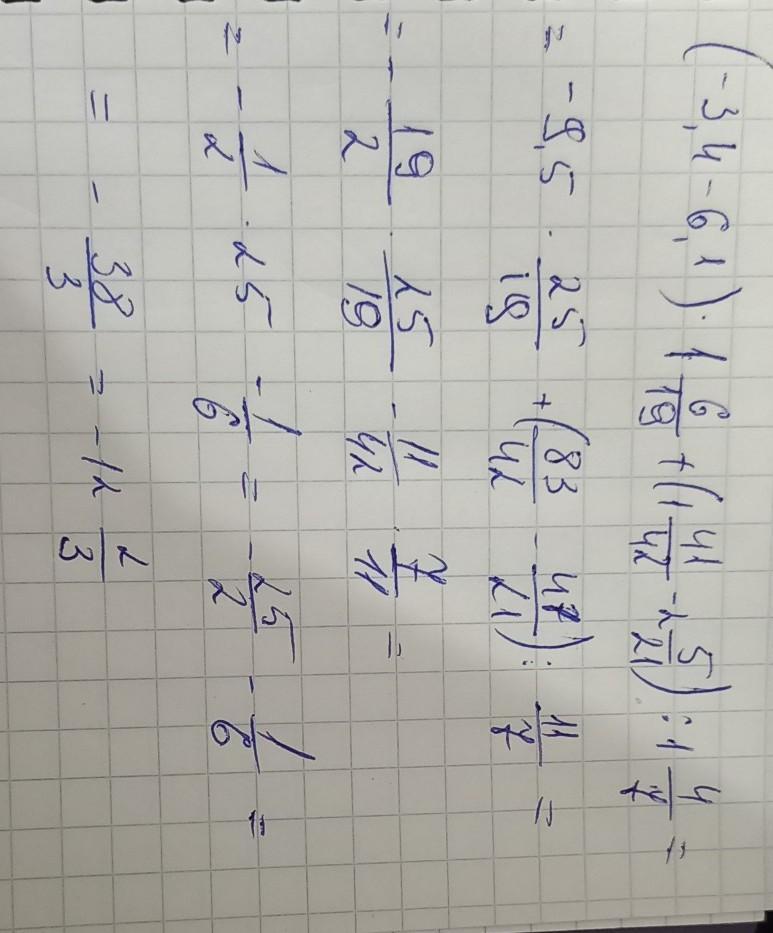 (-3,4 - 6,1) · 1 6/19 + (1 41/42 - 2 5/21) : 1 4/7 =
= -9,5 · 25/19 + (83/42 - 47/21) : 11/7 =
= - 19/2 · 25/19 - 11/42 · 7/11 =
= - 1/2 · 25 - 1/6 = - 25/2 - 1/6 =
= - 38/3 = -12 2/3